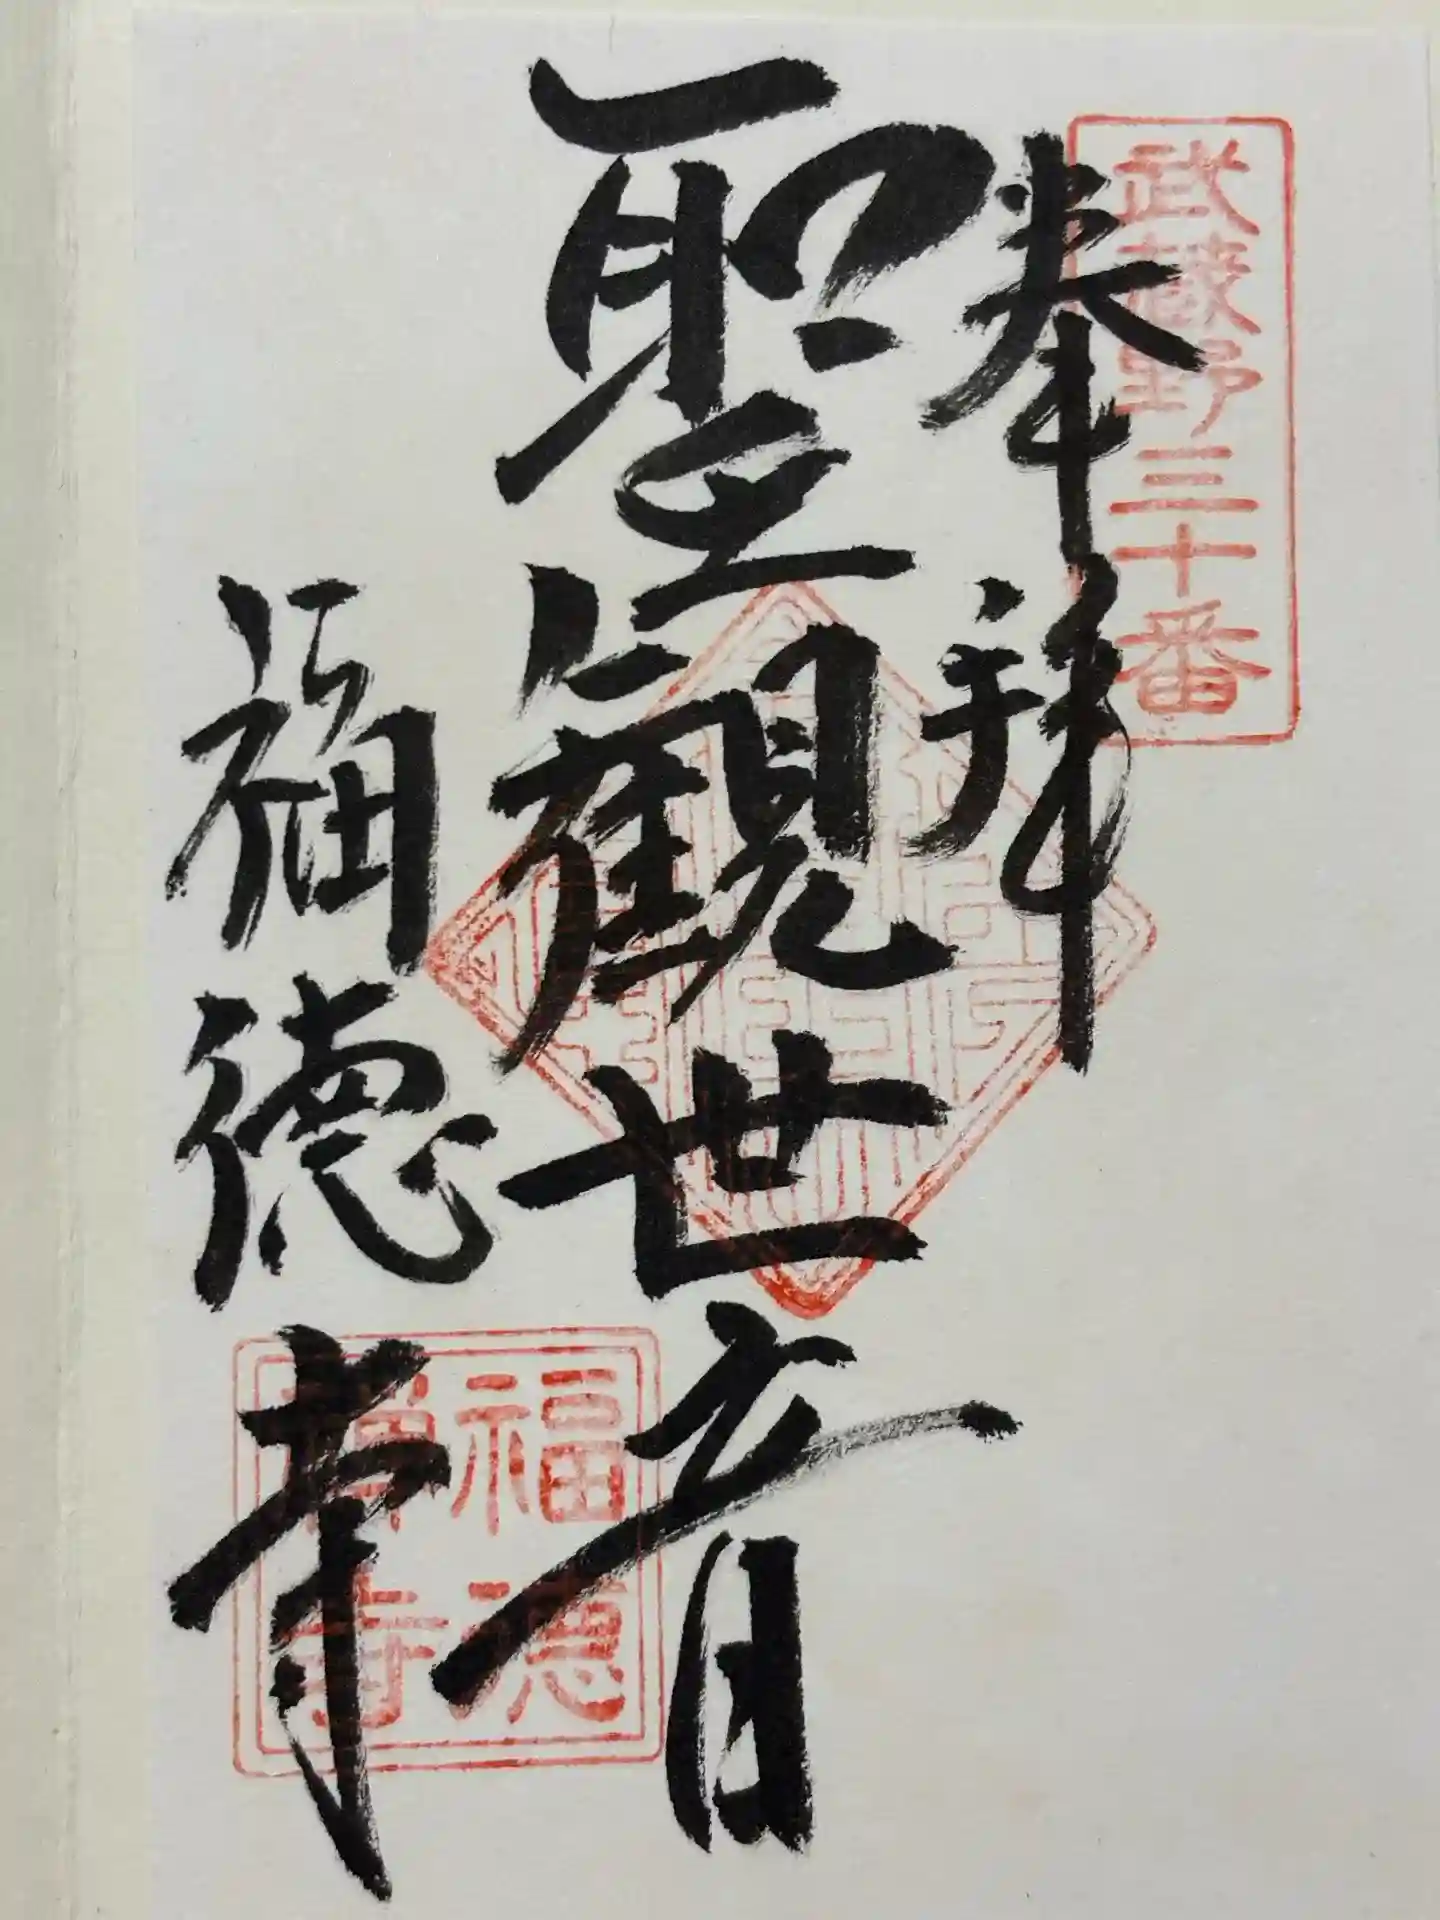 武蔵野三十番
奉拝
聖観世音
福徳寺
福徳
寺